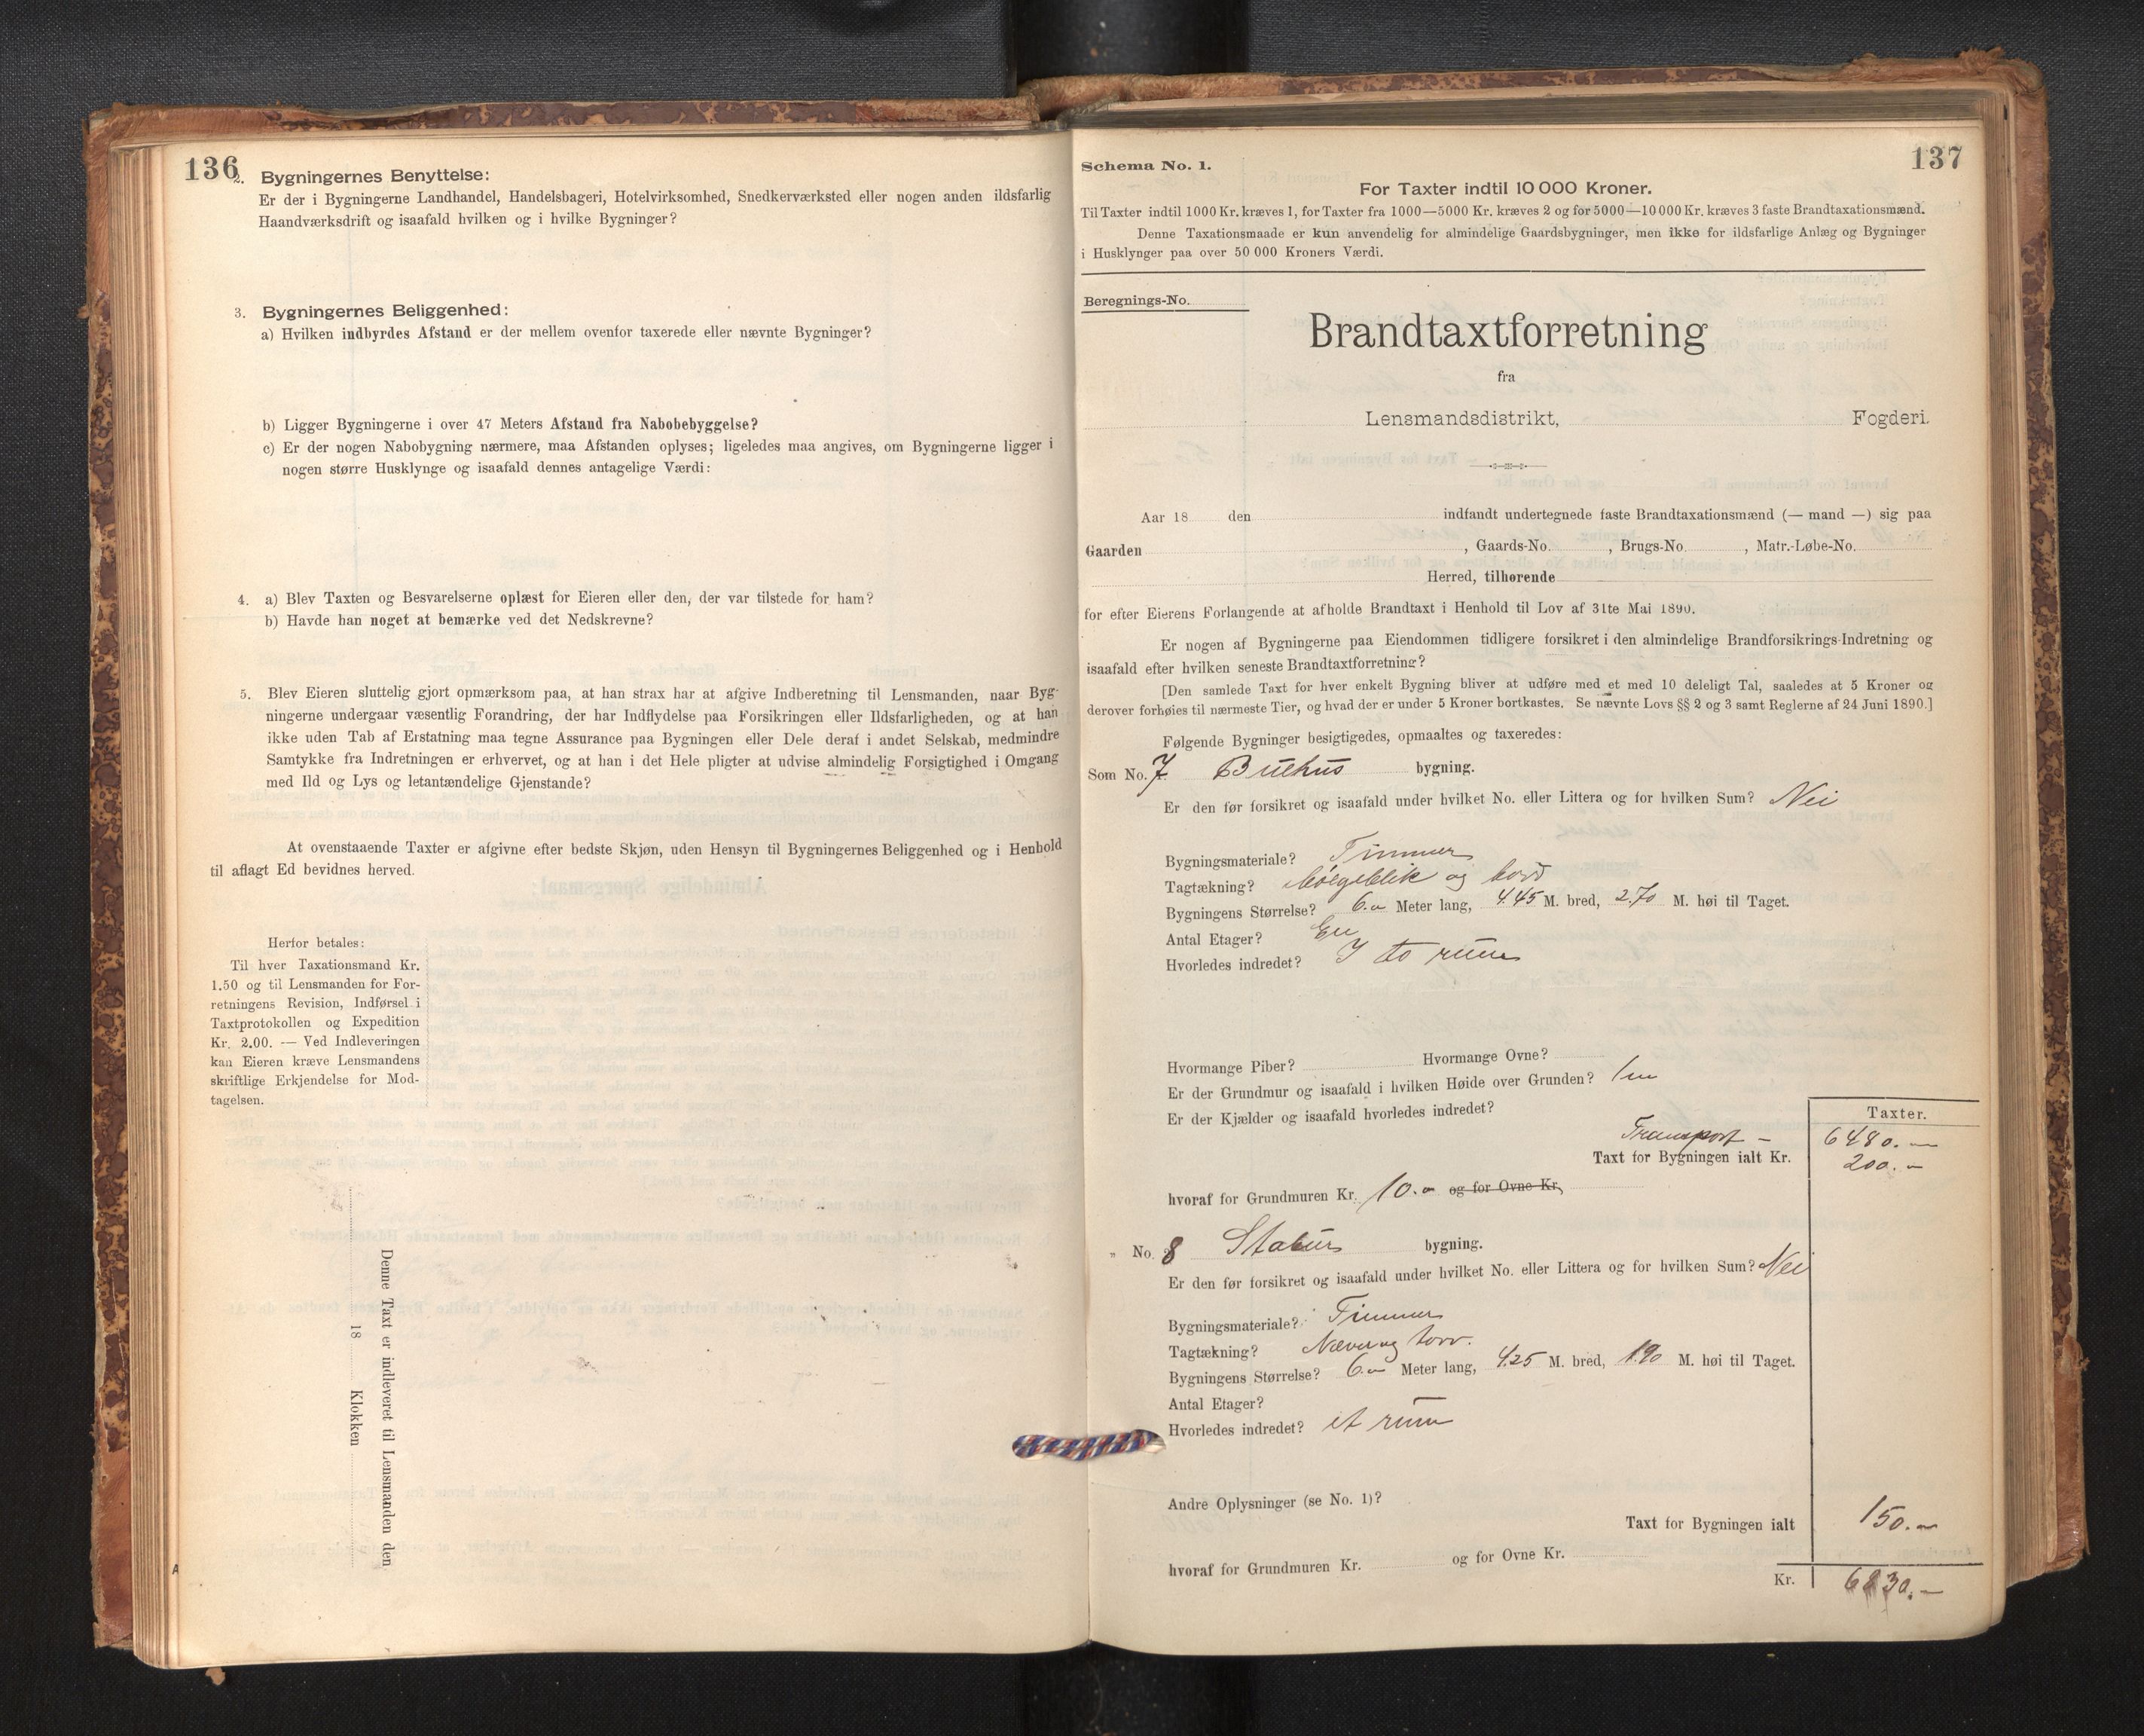 136
2. Bygningernes Benyttelse:
Er der i Bygningerne Landhandel, Handelsbageri, Hotelvirksomhed, Snedkerværksted eller nogen anden ildsfarlig
Haandværksdrift og isaafald hvilken og i hvilke Bygninger?
3. Bygningernes Beliggenhed:
a) Hvilken indbyrdes Afstand er der mellem ovenfor taxerede eller nævnte Bygninger?
b) Ligger Bygningerne i over 47 Meters Afstand fra Nabobebyggelse?
c) Er der nogen Nabobygning nærmere, maa Afstanden oplyses; ligeledes maa angives, om Bygningerne ligger i
nogen større Husklynge og isaafald dennes antagelige Værdi:
4. a) Blev Taxten og Besvarelserne oplæst for Eieren eller den, der var tilstede for ham?
b) Havde han noget at bemærke ved det Nedskrevne?
5. Blev Eieren sluttelig gjort opmærksom paa, at han strax har at afgive Indberetning til Lensmanden, naar Byg-
ningerne undergaar væsentlig Forandring, der har Indflydelse paa Forsikringen eller Ildsfarligheden, og at han
ikke uden Tab af Erstatning maa tegne Assurance paa Bygningen eller Dele deraf i andet Selskab, medmindre
Samtykke fra Indretningen er erhvervet, og at han i det Hele pligter at udvise almindelig Forsigtighed i Omgang
med Ild og Lys og letantændelige Gjenstande?
At ovenstaaende Taxter er afgivne efter bedste Skjøn, uden Hensyn til Bygningernes Beliggenhed og i Henhold
til aflagt Ed bevidnes herved.
Herfor betales:
Til hver Taxationsmand Kr.
1.50 og til Lensmanden for For-
retningens Revision, Indførsel i
Taxtprotokollen og Expedition
Kr. 2.00. — Ved Indleveringen
kan Eieren kræve Lensmandens
skriftlige Erkjendelse for Mod-
tagelsen.
Denne Taxt er indleveret til Lensmanden den
18 Klokken
137
Schema No. 1.
For Taxter indtil 10 000 Kroner.
Til Taxter indtil 1000 Kr. kræves 1, for Taxter fra 1000—5000 Kr. kræves 2 og for 5000—10 000 Kr. kræves 3 faste Brandtaxationsmænd.
Denne Taxationsmaade er kun anvendelig for almindelige Gaardsbygninger, men ikke for ildsfarlige Anlæg og Bygninger
i Husklynger paa over 50 000 Kroners Værdi.
Beregnings-No.
Brandtaxtforretning
fra
Lensmandsdistrikt, Fogderi.
Aar 18 den indfandt undertegnede faste Brandtaxationsmænd (— mand —) sig paa
Gaarden , Gaards-No. , Brugs-No. , Matr.-Løbe-No.
Herred, tilhørende
for efter Eierens Forlangende at afholde Brandtaxt i Henhold til Lov af 31te Mai 1890.
Er nogen af Bygningerne paa Eiendommen tidligere forsikret i den almindelige Brandforsikrings-Indretning og
isaafald efter hvilken seneste Brandtaxtforretning?
[Den samlede Taxt for hver enkelt Bygning bliver at udføre med et med 10 deleligt Tal, saaledes at 5 Kroner og
derover forhøies til nærmeste Tier, og hvad der er under 5 Kroner bortkastes. Se nævnte Lovs §§ 2 og 3 samt Reglerne af 24 Juni 1890.]
Følgende Bygninger besigtigedes, opmaaltes og taxeredes:
Som No. 7 Buehus bygning.
Er den før forsikret og isaafald under hvilket No. eller Littera og for hvilken Sum? Nei
Bygningsmateriale? Timmer
Tagtækning? bølgeblik og bord
Bygningens Størrelse? 6.00 Meter lang, 4.45 M. bred, 2.70 M. høi til Taget.
Antal Etager? En
Hvorledes indredet? I to rum
Hvormange Piber? Hvormange Ovne?
Er der Grundmur og isaafald i hvilken Høide over Grunden? 1 m
Er der Kjælder og isaafald hvorledes indredet?
Taxter.
Transport — 6480. —
Taxt for Bygningen ialt Kr. 200. —
hvoraf for Grundmuren Kr. 10.00 og for Ovne Kr.
" No. 8 Stabur bygning.
Er den før forsikret og isaafald under hvilket No. eller Littera og for hvilken Sum? Nei
Bygningsmateriale? Timmer
Tagtækning? Næver og torv.
Bygningens Størrelse? 6.00 Meter lang, 4.25 M. bred, 1.90 M. høi til Taget.
Antal Etager?
Hvorledes indredet? et rum
Andre Oplysninger (se No. 1)?
Taxt for Bygningen ialt 150. —
hvoraf for Grundmuren Kr. og for Ovne Kr.
Kr. 6830. —